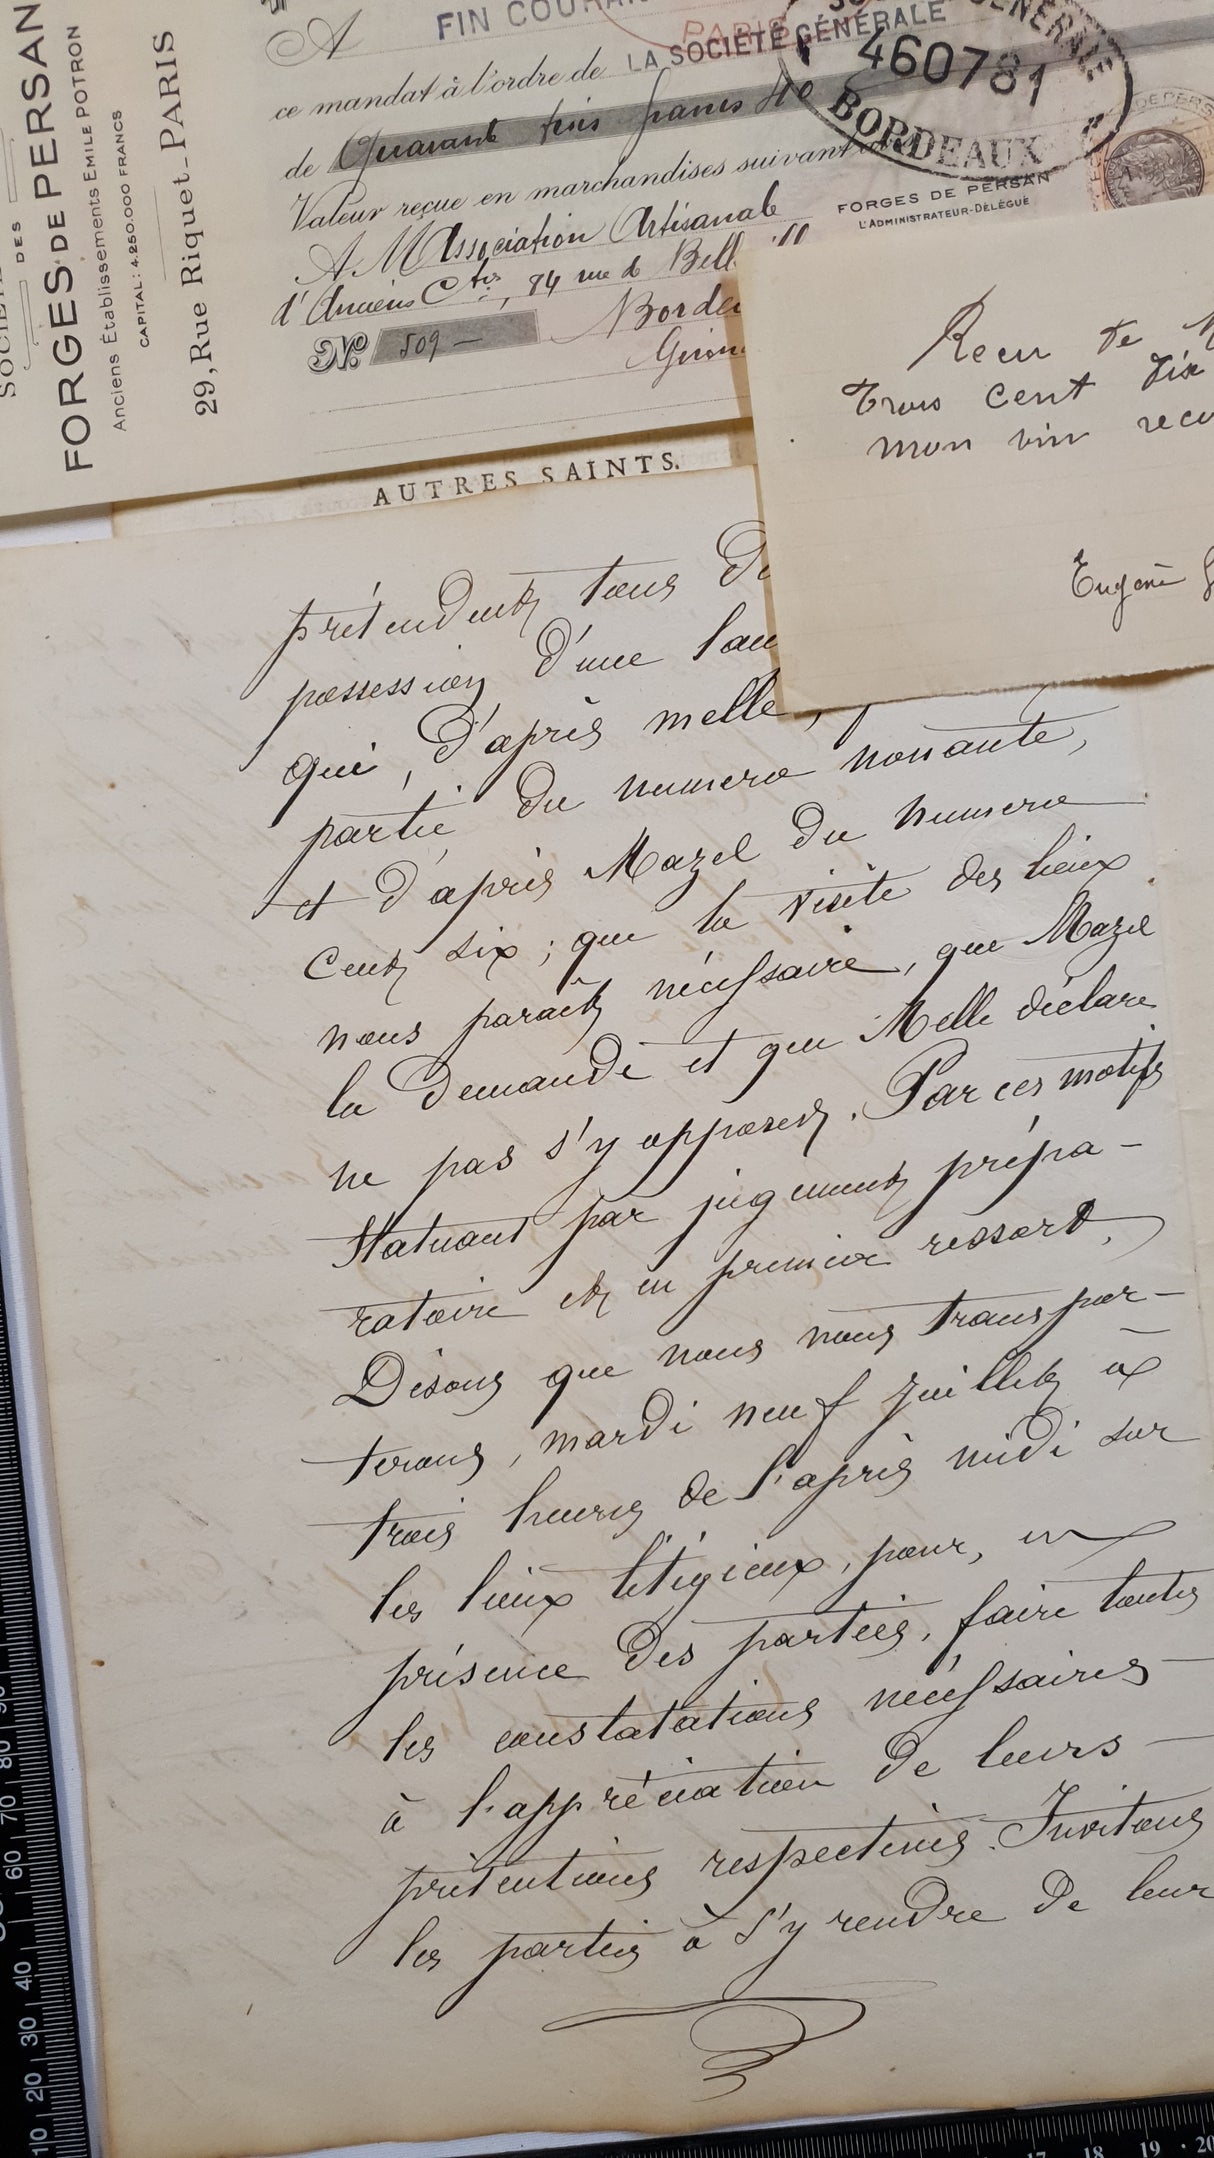 SOCIÉTÉ
DES
FORGES DE PERSAN
Anciens Établissements EMILE POTRON
CAPITAL: 4.250.000 FRANCS
29, Rue Riquet_PARIS
A
FIN COURAN
PARIS
ce mandat à l'ordre de LA SOCIÉTÉ GÉNÉRALE
de Quarante trois francs 40
Valeur reçue en marchandises suivant
A M Association Artisanale
d'Anciens Cts, 84 rue de Bell
Nº 509 - Borde
Giron
GÉNÉRALE
460781
BORDEAUX
FORGES DE PERSAN
L'ADMINISTRATEUR-DÉLÉGUÉ
DE PERS
Recu de M
Trois cent dix
mon vin recu
Eugène G
AUTRES SAINTS.
prétendent tous De
possession d'une lan
qui, d'après melle,
partie du numero nonante,
et d'après Mazel du numero
cent six ; que la visite des lieux
nous parait nécessaire, que Mazel
la demande et que Melle déclare
ne pas s'y opposer. Par ces motifs
Statuant par jugement prépa-
ratoire et en premier ressort,
Disons que nous nous transpor-
terons, mardi neuf juillet a
trois heures de l'après midi sur
les lieux litigieux, pour, en
présence des parties, faire toutes
les constatations nécessaires
à l'appréciation de leurs
prétentions respectives. Invitons
les parties à s'y rendre de leur
10 20 30 40 50 60 70 80 90
17 18 19 20